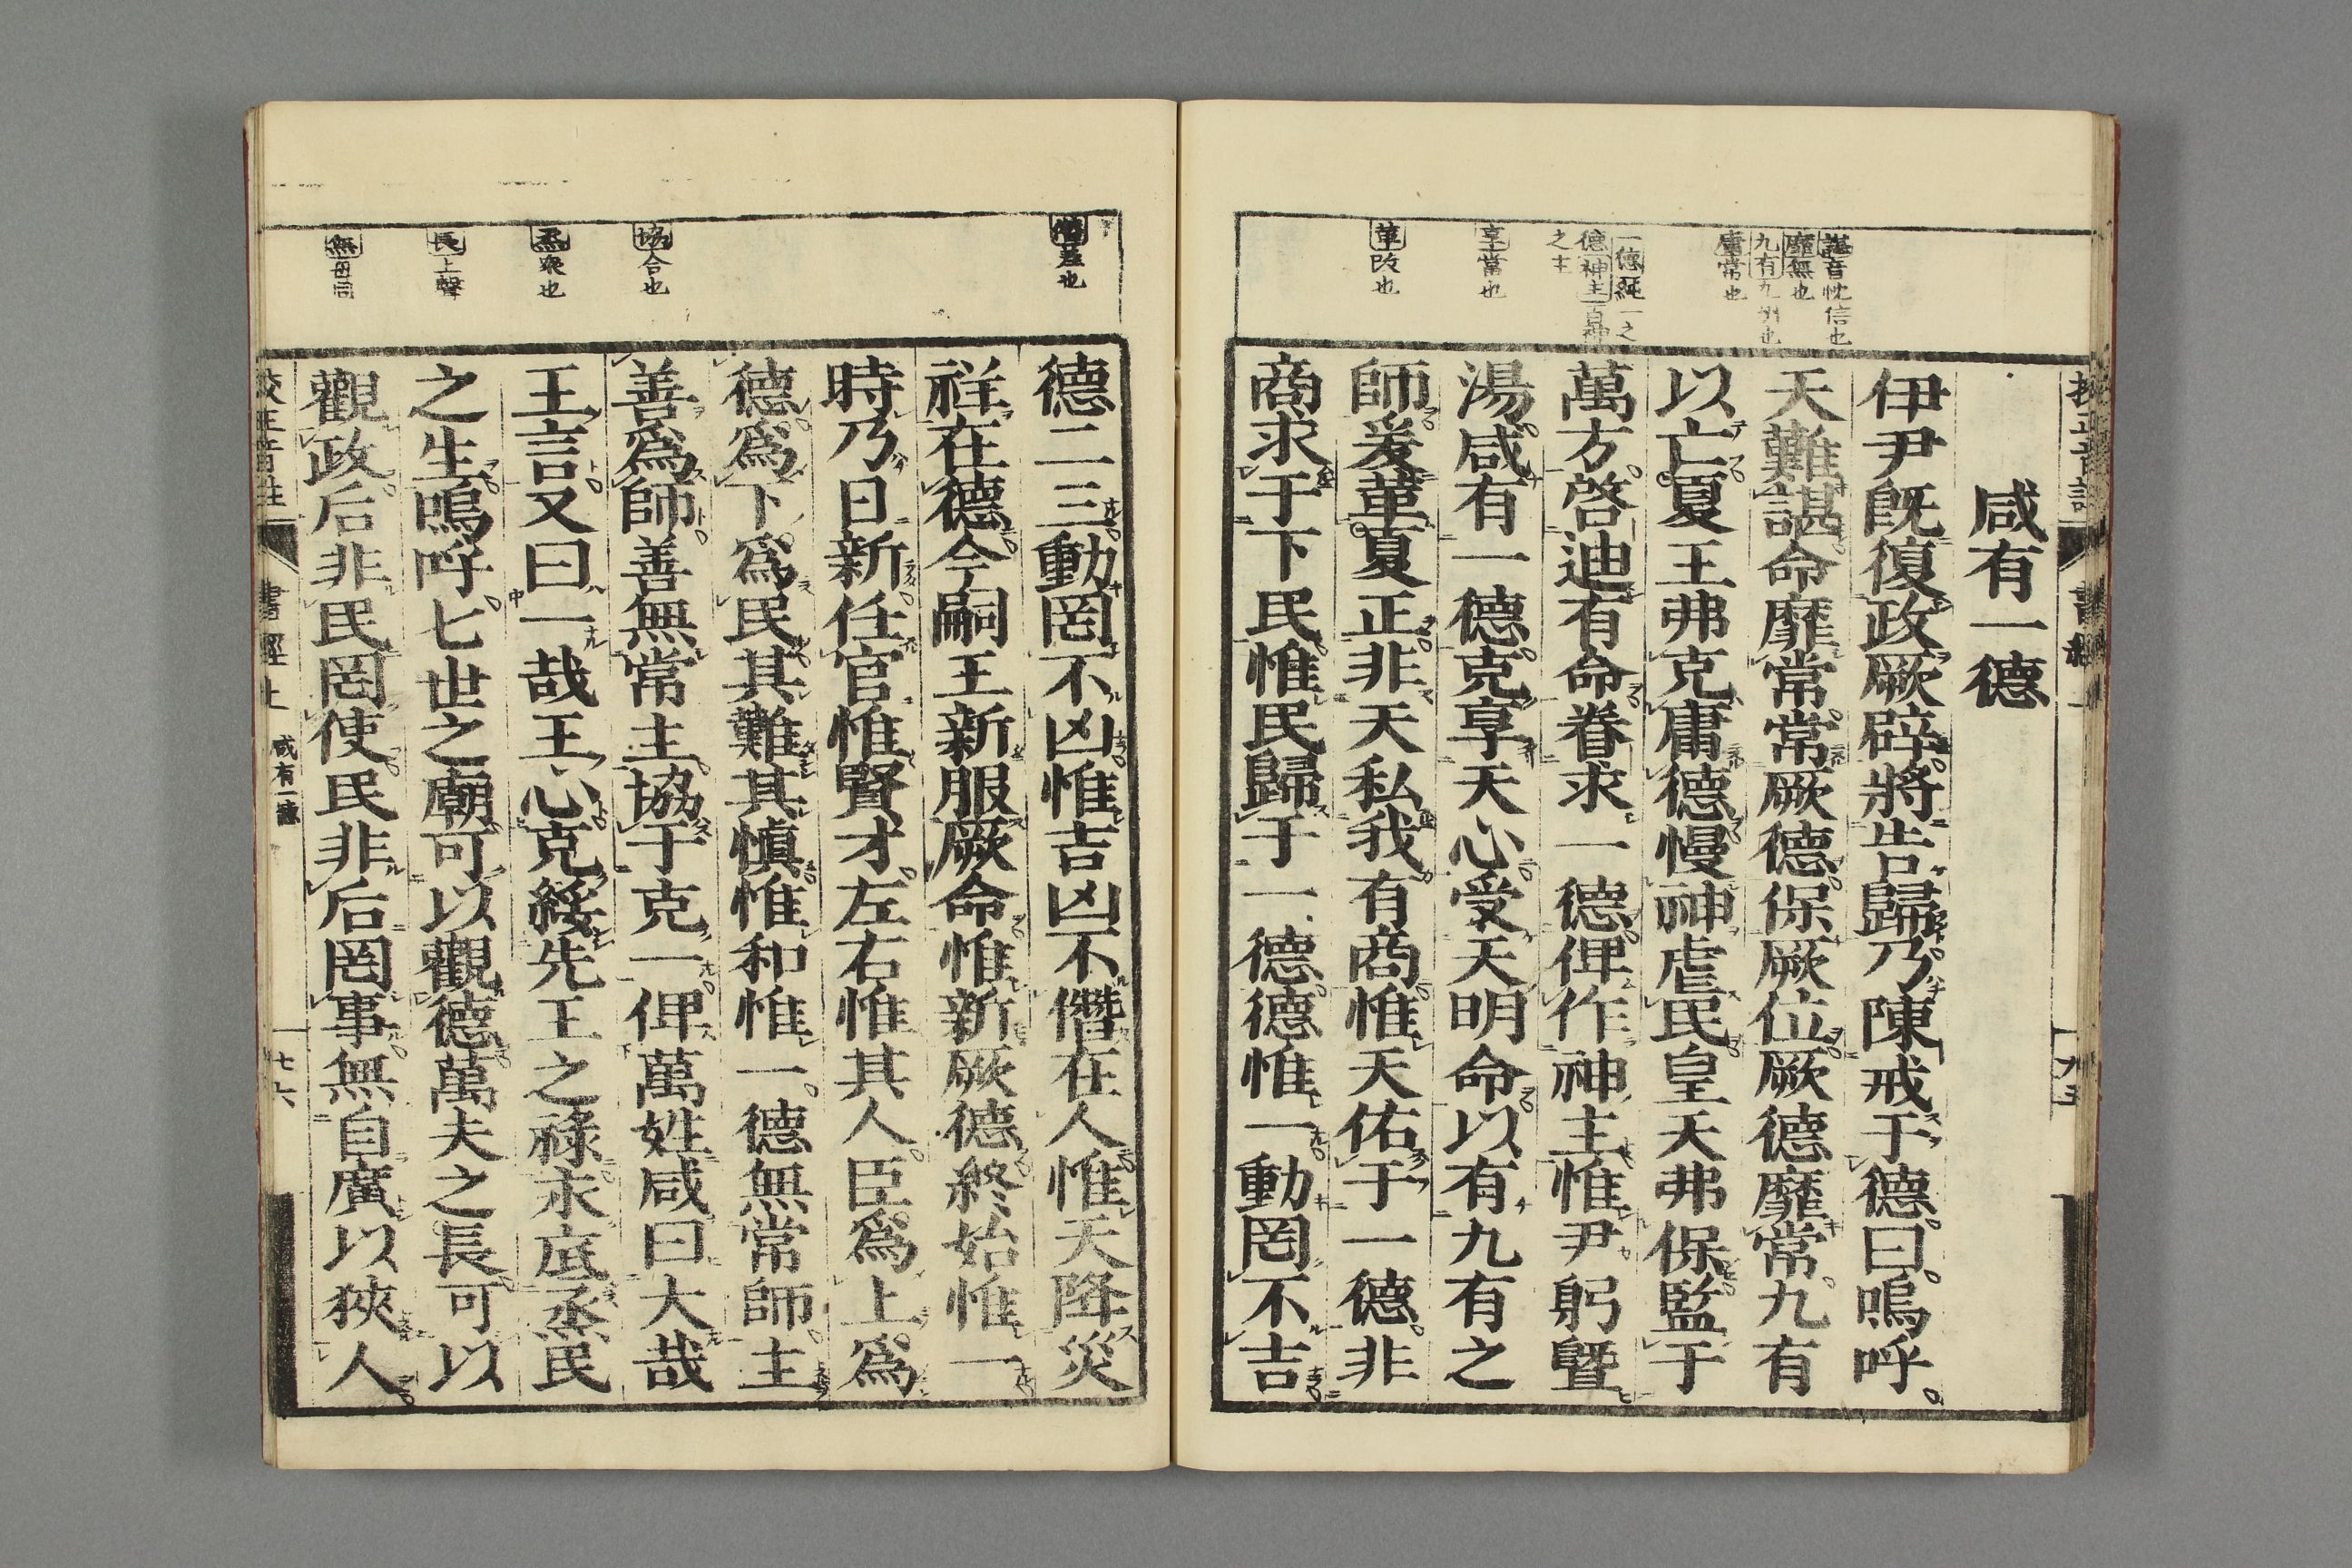 諶音忱信也
靡無也
九有九州也
庸常也
一德純一之
德神主百神
之主
享當也
革改也
咸有一德
伊尹既復政厥辟將告歸乃陳戒于德曰嗚呼
天難諶命靡常常厥德保厥位厥德靡常九有
以亡夏王弗克庸德慢神虐民皇天弗保監于
萬方啓迪有命眷求一德俾作神主惟尹躬曁
湯咸有一德克享天心受天明命以有九有之
師爰革夏正非天私我有商惟天佑于一德非
商求于下民惟民歸于一德德惟一動罔不吉
僭差也
協合也
烝衆也
長上聲
無毋同
德二三動罔不凶惟吉凶不僭在人惟天降災
祥在德今嗣王新服厥命惟新厥德終始惟一
時乃日新任官惟賢才左右惟其人臣爲上爲
德爲下爲民其難其愼惟和惟一德無常師主
善爲師善無常主協于克一俾萬姓咸曰大哉
王言又曰一哉王心克綏先王之祿永底烝民
之生嗚呼七世之廟可以觀德萬夫之長可以
觀政后非民罔使民非后罔事無自廣以狹人
校正音註 書經上 咸有一德 七六